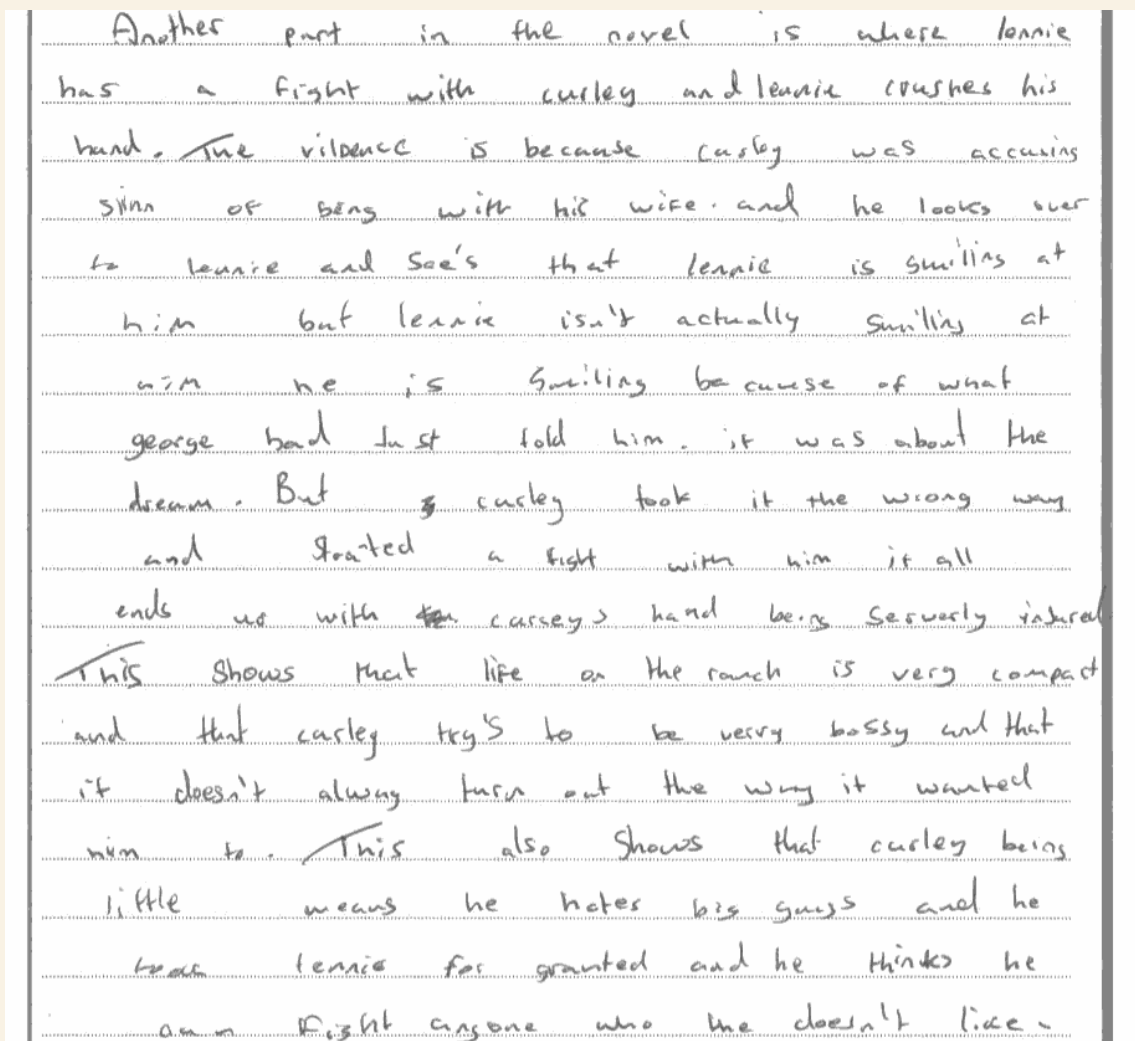 Another part in the novel is where lennie
has a fight with curley and lennie crushes his
hand. The viloence is because curley was accusing
slim of being with his wife. and he looks over
to lennie and see's that lennie is smiling at
him but lennie isn't actually smiling at
him he is smiling because of what
george had Just told him. it was about the
dream. But curley took it the wrong way
and strated a fight with him it all
ends up with curleys hand being serverly injured
This shows that life on the ranch is very compact
and that curley try's to be verry bossy and that
it doesn't alway turn out the way it wanted
him to. This also shows that curley being
little means he hates big guys and he
took lennie for granted and he thinks he
can fight anyone who he doesn't like.